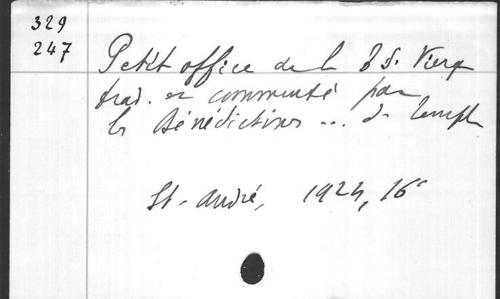 329
247
Petit office de la S. Vierge
trad. et commenté par
les Bénédictines ... du Temple
St-André, 1924, 16°